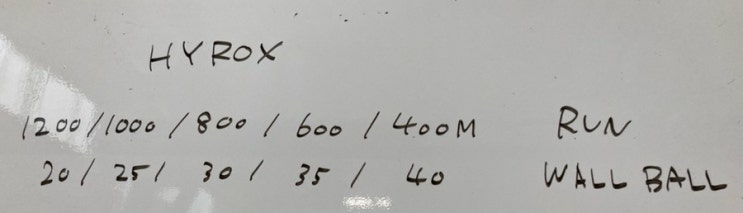 HYROX
1200/1000/800/600/400M RUN
20/25/30/35/40 WALL BALL